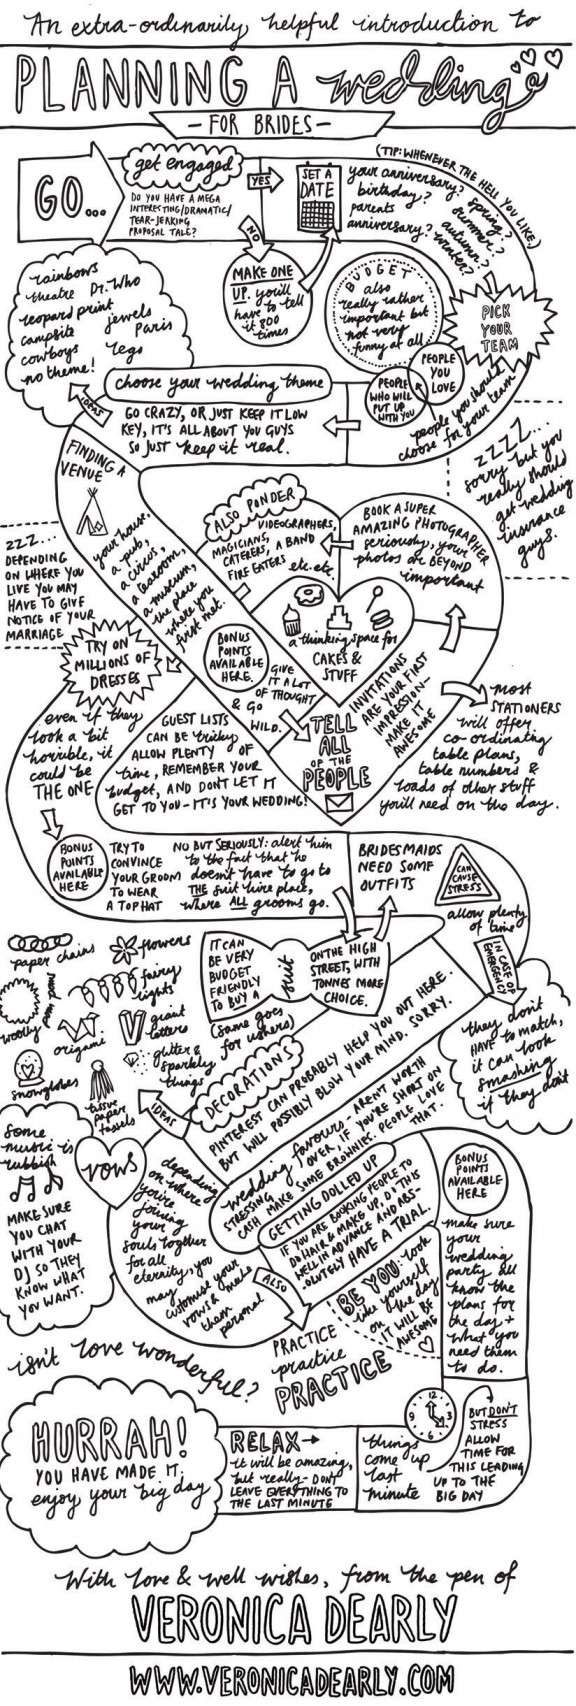 An extra-ordinarily helpful introduction to
PLANNING A wedding
- FOR BRIDES -
GO...
get engaged
DO YOU HAVE A MEGA
INTERESTING/DRAMATIC/
TEAR-JERKING
PROPOSAL TALE?
YES
NO
MAKE ONE
UP. you'll
have to tell
it 800
times
SET A
DATE
(TIP: WHENEVER THE HELL YOU LIKE)
your anniversary?
birthday?
parents
anniversary?
spring?
summer?
autumn?
winter?
PICK
YOUR
TEAM
BUDGET
also
really rather
important but
not very
funny at all
PEOPLE
YOU
LOVE
PEOPLE
WHO WILL
PUT UP
WITH YOU
people you should
choose for your team
choose your wedding theme
GO CRAZY, OR JUST KEEP IT LOW
KEY, IT'S ALL ABOUT YOU GUYS
SO JUST keep it real.
IDEAS
rainbows
theatre Dr. Who
leopard print
jewels
campsite
Paris
cowboys
lego
no theme!
zzzz...
sorry but you
really should
get wedding
insurance
guys.
FINDING A
VENUE
your house,
a pub,
a circus,
a tearoom,
a museum,
the place
where you
first met.
zzz...
DEPENDING
ON WHERE YOU
LIVE YOU MAY
HAVE TO GIVE
NOTICE OF YOUR
MARRIAGE
ALSO PONDER
VIDEOGRAPHERS,
MAGICIANS,
CATERERS, A BAND
FIRE EATERS etc. etc.
BOOK A SUPER
AMAZING PHOTOGRAPHER
seriously, your
photos are BEYOND
important
a thinking space for
CAKES &
STUFF
BONUS
POINTS
AVAILABLE
HERE.
GIVE
IT A LOT
OF THOUGHT
& GO
WILD.
INVITATIONS
ARE YOUR FIRST
IMPRESSION-
MAKE IT
AWESOME
most
STATIONERS
will offer
co-ordinating
table plans,
table numbers &
loads of other stuff
you'll need on the day.
TELL
ALL
OF THE
PEOPLE
GUEST LISTS
CAN BE tricky
ALLOW PLENTY OF
time, REMEMBER YOUR
budget, AND DON'T LET IT
GET TO YOU - IT'S YOUR WEDDING!
TRY ON
MILLIONS OF
DRESSES
even if they
look a bit
horrible, it
could be
THE ONE
BONUS
POINTS
AVAILABLE
HERE
TRY TO
CONVINCE
YOUR GROOM
TO WEAR
A TOP HAT
NO BUT SERIOUSLY: alert him
to the fact that he
doesn't have to go to
THE suit hire place,
where ALL grooms go.
BRIDESMAIDS
NEED SOME
OUTFITS
CAN
CAUSE
STRESS
allow plenty
of time
IN CASE OF
EMERGENCY
they don't
HAVE to match,
it can look
smashing
if they don't
IT CAN
BE VERY
BUDGET
FRIENDLY
TO BUY A
suit
ON THE HIGH
STREET, WITH
TONNES MORE
CHOICE.
(same goes
for ushers)
DECORATIONS
PINTEREST CAN PROBABLY HELP YOU OUT HERE.
BUT WILL POSSIBLY BLOW YOUR MIND. SORRY.
IDEAS
paper chains
flowers
fairy
lights
woolly
origami
giant
letters
glitter &
sparkly
things
snowglobes
tissue
paper
tassels
wedding favours - AREN'T WORTH
STRESSING OVER, IF YOU'RE SHORT ON
CASH MAKE SOME BROWNIES. PEOPLE LOVE
THAT.
GETTING DOLLED UP
IF YOU ARE BOOKING PEOPLE TO
DO HAIR & MAKE UP, DO THIS
WELL IN ADVANCE AND ABS-
OLUTELY HAVE A TRIAL.
BE YOU: look
like yourself
on the day
IT WILL BE
AWESOME
vows
depending
on where
you're
joining
your
souls together
for all
eternity, you
may
customise your
vows & make
them
personal
ALSO
PRACTICE
practice
PRACTICE
some
music is
rubbish
MAKE SURE
YOU CHAT
WITH YOUR
DJ SO THEY
KNOW WHAT
YOU WANT.
BONUS
POINTS
AVAILABLE
HERE
make sure
your
wedding
party all
know the
plans for
the day +
what you
need them
to do.
isn't love wonderful?
12
3
6
9
BUT DON'T
STRESS
ALLOW
TIME FOR
THIS LEADING
UP TO THE
BIG DAY
things
come up
last
minute
RELAX
it will be amazing,
but really - DON'T
LEAVE EVERYTHING TO
THE LAST MINUTE
HURRAH!
YOU HAVE MADE IT,
enjoy your big day
With love & well wishes, from the pen of
VERONICA DEARLY
WWW.VERONICADEARLY.COM